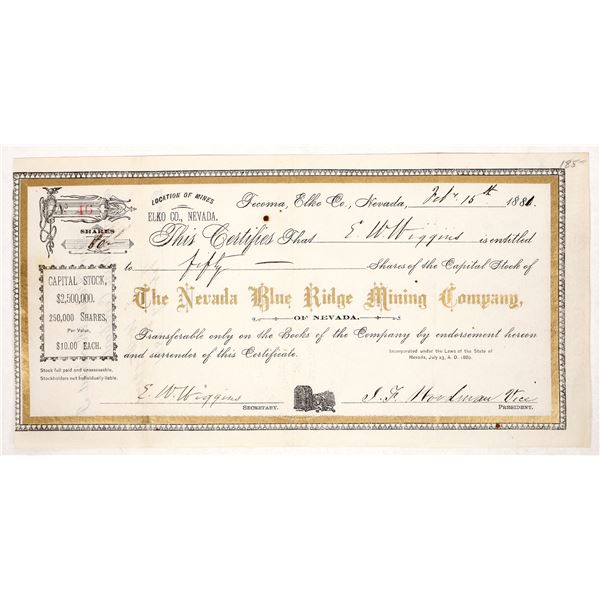 185-
No 46
SHARES
LOCATION OF MINES
ELKO CO., NEVADA.
Tecoma, Elko Co., Nevada, Feb. 15th 188
This Certifies That E. W. Wiggins is entitled
to fifty Shares of the Capital Stock of
The Nevada Blue Ridge Mining Company,
OF NEVADA.
Transferable only on the Books of the Company by endorsement hereon
and surrender of this Certificate.
Incorporated under the Laws of the State of
Nevada, July 23, A. D. 1880.
CAPITAL STOCK,
$2,500,000.
250,000 SHARES,
Par Value,
$10.00 EACH.
Stock full paid and unassessable.
Stockholders not individually liable.
E. W. Wiggins
SECRETARY.
J. F. Woodman Vice
PRESIDENT.